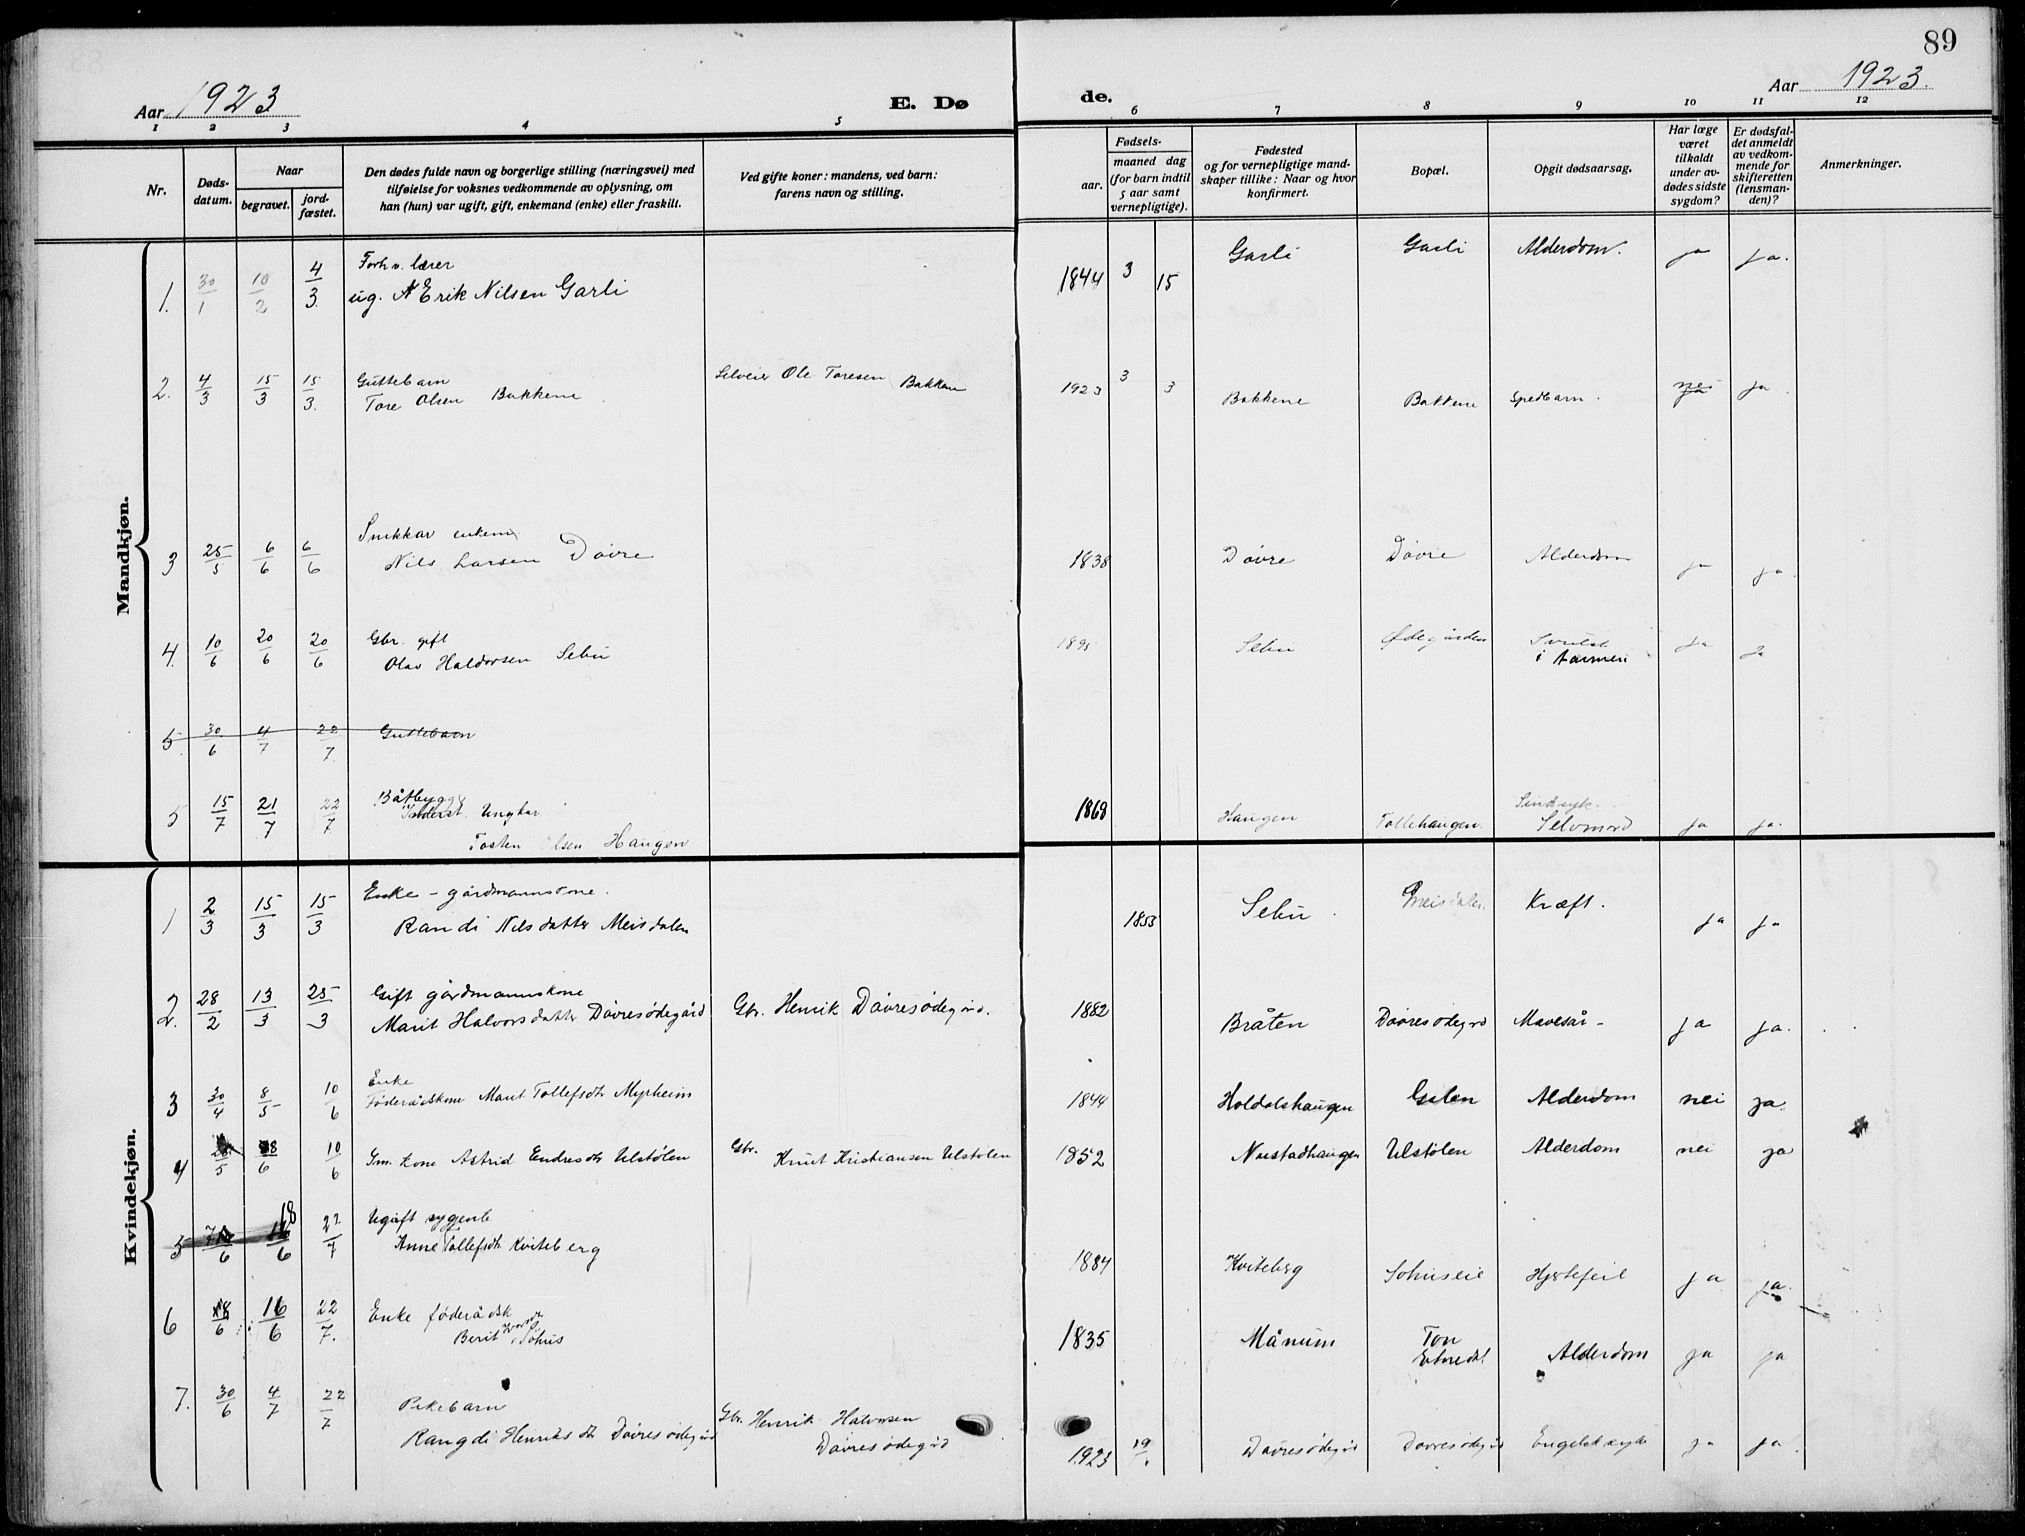 89
Aar 1923
E. Dø
de.
Aar 1923.
1 2 3 4 5 6 7 8 9 10 11 12
Nr.
Døds-
datum.
Naar
begravet.
jord-
fæstet.
Den dødes fulde navn og borgerlige stilling (næringsvei) med
tilføielse for voksnes vedkommende av oplysning, om
han (hun) var ugift, gift, enkemand (enke) eller fraskilt.
Ved gifte koner: mandens, ved barn:
farens navn og stilling.
Fødsels-
aar.
maaned dag
(for barn indtil
5 aar samt
vernepligtige).
Fødested
og for vernepligtige mand-
skaper tillike: Naar og hvor
konfirmert.
Bopæl.
Opgit dødsaarsag.
Har læge
været
tilkaldt
under av-
dødes sidste
sygdom?
Er dødsfal-
det anmeldt
av vedkom-
mende for
skifteretten
(lensman-
den)?
Anmerkninger.
Mandkjøn.
Forhv. lærer
1. 30/1 10/2 4/3 ug. Erik Nilsen Garli 1844 3 15 Garli Garli Alderdom. ja ja.
Guttebarn
2. 4/3 15/3 15/3. Tore Olsen Bakkene Selveier Ole Toresen Bakken 1923 3 3 Bakkene Bakkene Spedbarn. nei ja
Snikkar enkem
3 25/5 6/6 6/6 Nils Larsen Dövre 1838 Dövre Dövre Alderdom ja ja.
Gbr. gift
4. 10/6 20/6 20/6 Olav Haldorsen Sebu 1895 Sebu Ødegården Svulst
i tarmen ja ja
5. 30/6 4/7 22/7. Guttebarn
Båtbygger
5 15/7 21/7 22/7 Ungkar
Tosten Olsen Haugen 1868 Haugen Tollehaugen. Sindsyk.
Selvmord ja ja.
Kvindekjøn.
Enke - gårdmannskone.
1 2/3 15/3 15/3 Randi Nilsdatter Meisdalen 1853 Sebu. Meisdalen Kræft. ja ja
Gift gårdmannskone
2. 28/2 13/3 25/3 Marit Halvorsdatter Dövresødegård Gbr. Henrik Dövresødegård. 1882 Bråten Dövresødegrd Mavesår - ja ja.
Enke
3 30/4 8/5 10/6 Føderådskone Marit Tollefsdtr Myrheim 1844 Holdalshaugen Gilen Alderdom nei ja.
4 28/5 8/6 10/6 Gm. kone Astrid Endresdtr Ulstølen Gbr. Knut Kristiansen Ulstølen 1852 Neustadhaugen Ulstølen Alderdom nei ja
Ugift sygente
5 7/6 18/6 22/7 Anne Tollefsdtr Kviteberg 1884 Kviteberg Sohuseie Hjertefeil ja ja.
Enke føderådsk
6 8/6 16/6 22/7. Berit Sohus 1835 Månum Ton
Etnedal Alderdom ja ja
Pikebarn
7. 30/6 4/7 22/7 Rangdi Henriksdtr Dövresødegård Gbr. Henrik Halvorsen
Dövresødegrd 1923 Dövresødegrd Dövresødegrd Engelsk syke ja ja.